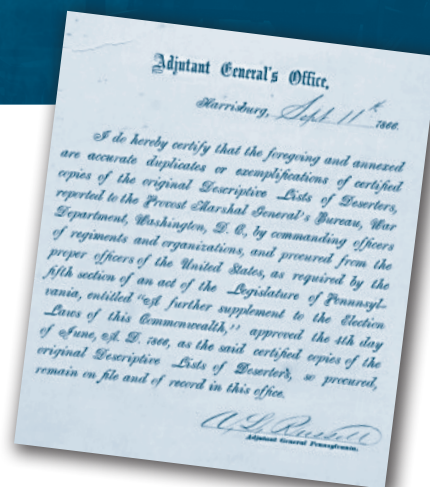 Adjutant General's Office,
Harrisburg, Sept 11th 1866.
I do hereby certify that the foregoing and annexed
are accurate duplicates or exemplifications of certified
copies of the original Descriptive Lists of Deserters,
reported to the Provost Marshal General's Bureau, War
Department, Washington, D. C., by commanding officers
of regiments and organizations, and procured from the
proper officers of the United States, as required by the
fifth section of an act of the Legislature of Pennsyl-
vania, entitled "A further supplement to the Election
Laws of this Commonwealth," approved the 4th day
of June, A. D. 1866, as the said certified copies of the
original Descriptive Lists of Deserters, so procured,
remain on file and of record in this office.
A. L. Russell
Adjutant General Pennsylvania.